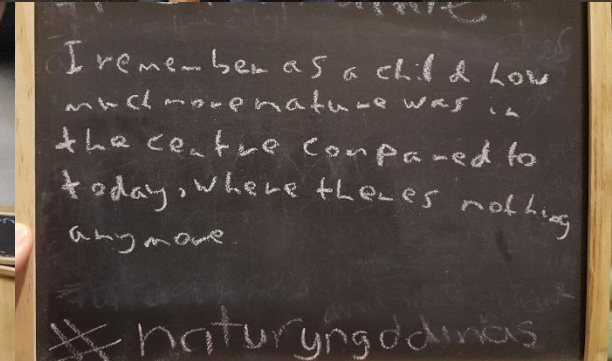 I remember as a child how
much more nature was in
the centre compared to
today, where theres nothing
anymore
#naturyngddinas